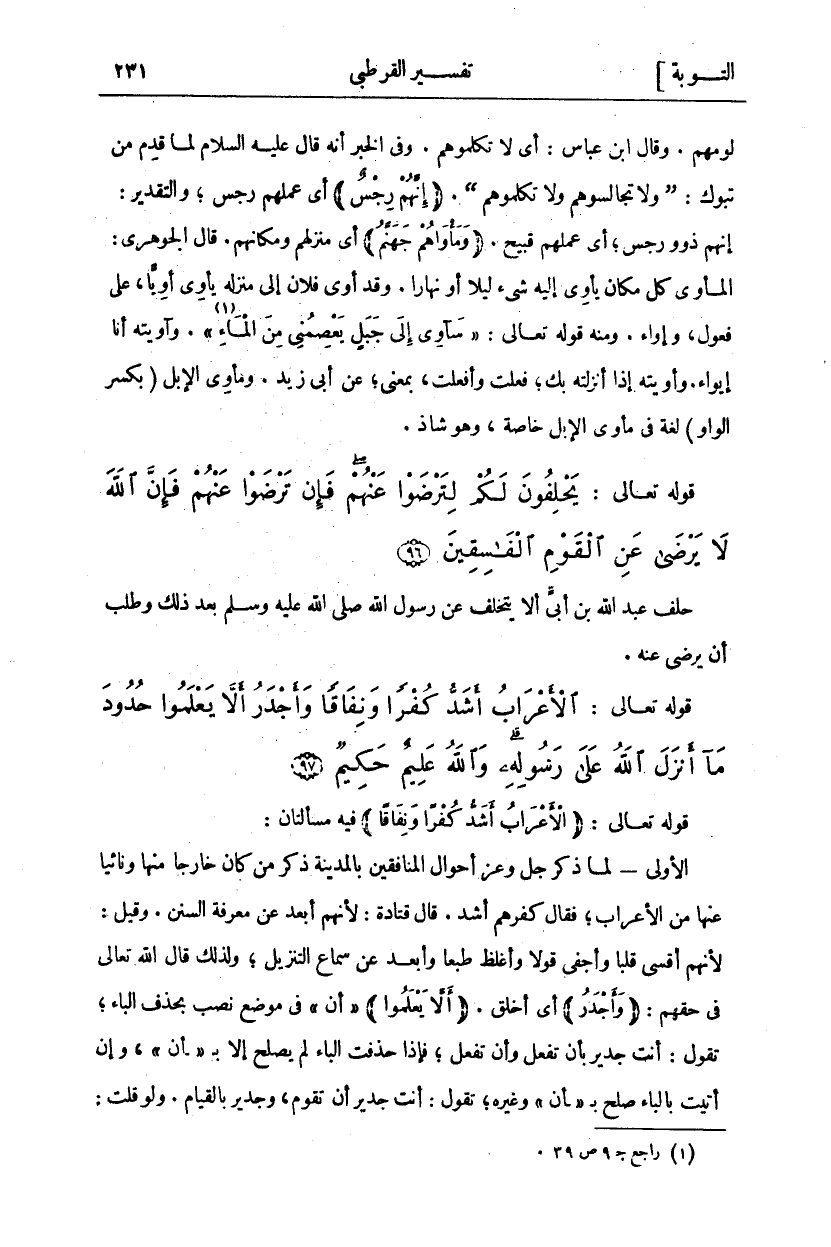 التـــوبة ] تفســـير القرطبى ٢٣١
لومهم . وقال ابن عباس : أى لا تكلموهم . وفى الخبر أنه قال عليـه السلام لمـا قدِم من
تبوك : ” ولا تجالسوهم ولا تكلموهم “ . ﴿ إِنَّهُمْ رِجْسٌ ﴾ أى عملهم رجس ؛ والتقدير :
إنهم ذوو رجس؛ أى عملهم قبيح . ﴿ وَمَأْوَاهُمْ جَهَنَّمُ ﴾ أى منزلهم ومكانهم. قال الجوهرى:
المـأوى كل مكان يأوى إليه شىء ليلا أو نهارا . وقد أوى فلان إلى منزله يأوِى أُوِيًّا، على
فعول، وإواء . ومنه قوله تعـالى : « سَآوِى إِلَى جَبَلٍ يَعْصِمُنِى مِنَ الْمَـاءِ (١) » . وآويته أنا
إيواء. وأويته إذا أنزلته بك؛ فعلت وأفعلت، بمعنى؛ عن أبى زيد . ومأوِى الإبل ( بكسر
الواو ) لغة فى مأوى الإبل خاصة ، وهو شاذ .
قوله تعـالى : يَحْلِفُونَ لَكُمْ لِتَرْضَوْا عَنْهُمْ ۖ فَإِن تَرْضَوْا عَنْهُمْ فَإِنَّ ٱللَّهَ
لَا يَرْضَىٰ عَنِ ٱلْقَوْمِ ٱلْفَـٰسِقِينَ ﴿٩٦﴾
حلف عبد الله بن أُبىّ ألا يتخلف عن رسول الله صلى الله عليه وسـلم بعد ذلك وطلب
أن يرضى عنه .
قوله تعـالى : ٱلْأَعْرَابُ أَشَدُّ كُفْرًا وَنِفَاقًا وَأَجْدَرُ أَلَّا يَعْلَمُوا حُدُودَ
مَآ أَنزَلَ ٱللَّهُ عَلَىٰ رَسُولِهِۦ ۗ وَٱللَّهُ عَلِيمٌ حَكِيمٌ ﴿٩٧﴾
قوله تعـالى : ﴿ الْأَعْرَابُ أَشَدُّ كُفْرًا وَنِفَاقًا ﴾ فيه مسألتان :
الأولى — لمـا ذكر جل وعز أحوال المنافقين بالمدينة ذكر من كان خارجا منها ونائيا
عنها من الأعراب؛ فقال كفرهم أشد . قال قتادة : لأنهم أبعد عن معرفة السنن . وقيل :
لأنهم أقسى قلبا وأجفى قولا وأغلظ طبعا وأبعـد عن سماع التنزيل ؛ ولذلك قال الله تعالى
فى حقهم : ﴿ وَأَجْدَرُ ﴾ أى أخلق . ﴿ أَلَّا يَعْلَمُوا ﴾ « أن » فى موضع نصب بحذف الباء ؛
تقول : أنت جدير بأن تفعل وأن تفعل ؛ فإذا حذفت الباء لم يصلح إلا بـ «ـأن » ، وإن
أتيت بالباء صلح بـ «ـأن » وغيره؛ تقول : أنت جدير أن تقوم، وجدير بالقيام . ولو قلت :
(١) راجع جـ ٩ ص ٣٩ .